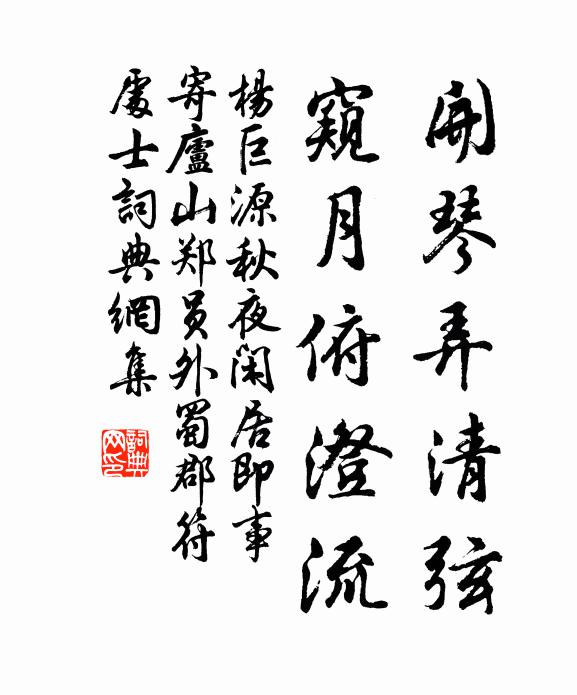 開琴弄清弦
窺月俯澄流
楊巨源秋夜閑居即事
寄廬山郑員外蜀郡符
處士詞典網集
詞典
网印